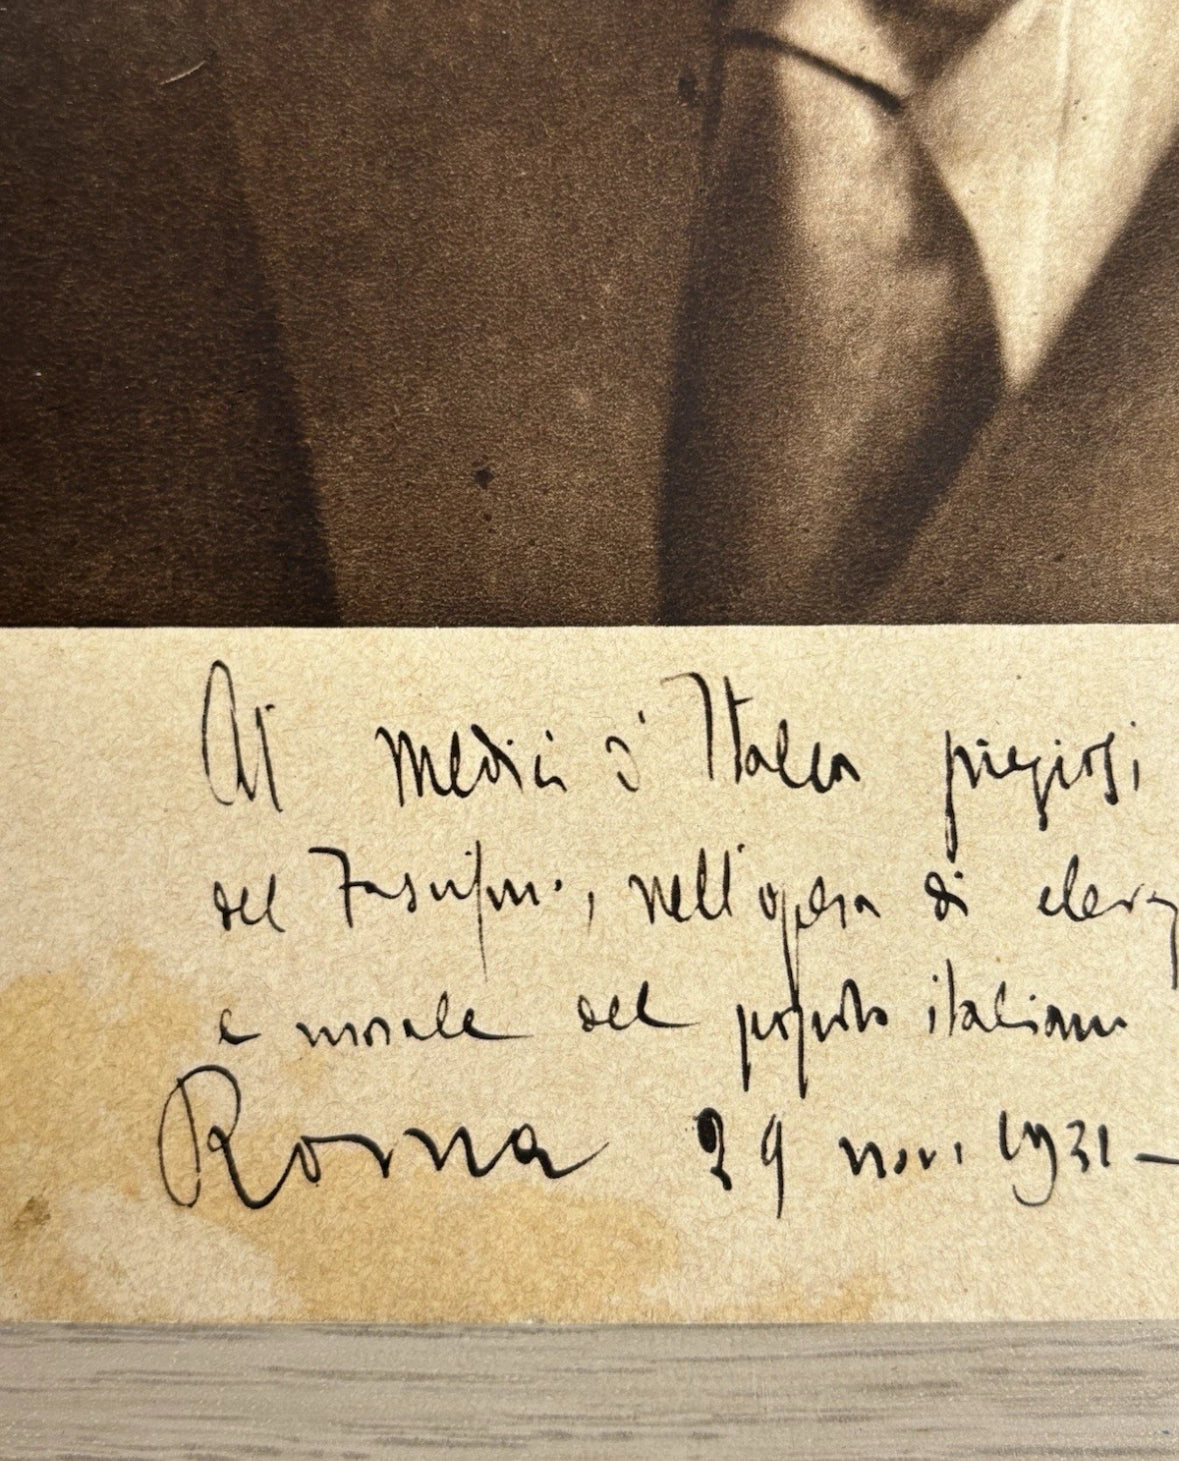 Ai medici d'Italia preziosi
del Fascismo, nell'opera di
e morale del popolo italiano
Roma 29 nov. 1931 -